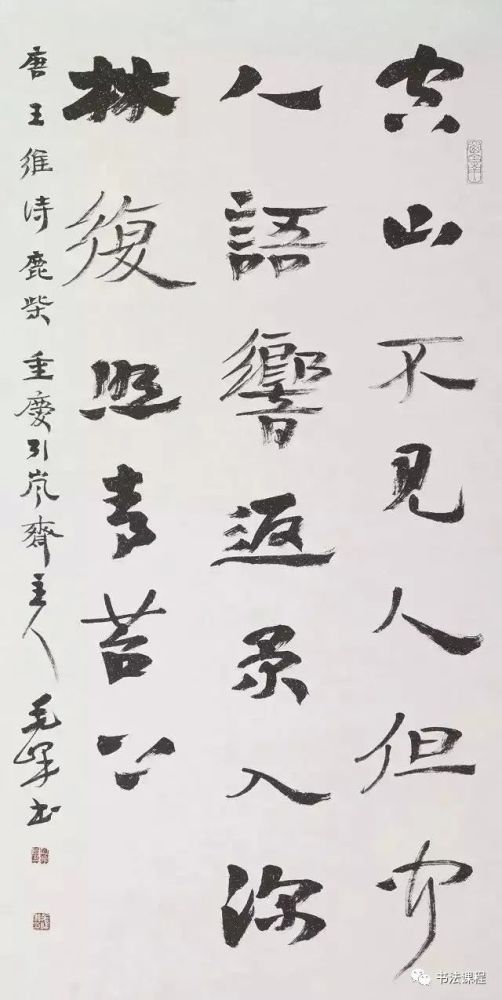 空山不见人但闻
人語響返景入深
林復照青苔上
唐王維诗鹿柴重慶引岚齋主人毛峰书
书法课程